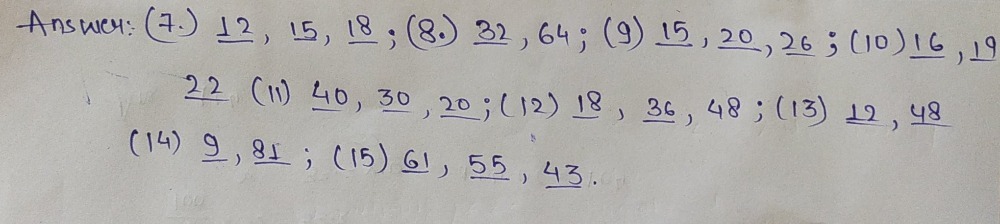 Answer: (7.) 12, 15, 18; (8.) 32, 64; (9) 15, 20, 26; (10) 16, 19
22 (11) 40, 30, 20; (12) 18, 36, 48; (13) 12, 48
(14) 9, 81; (15) 61, 55, 43.